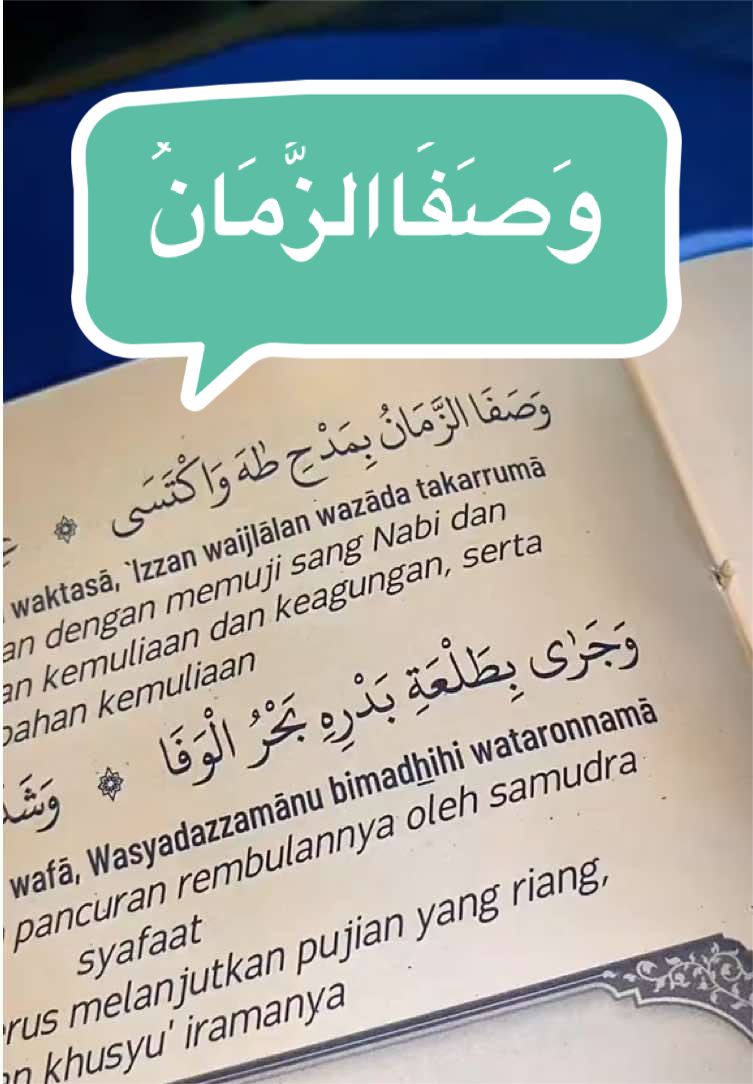 وَصَفَاالزَّمَانُ
وَصَفَا الزَّمَانُ بِمَدْحِ طٰهَ وَاكْتَسَى ۞
waktasā, `Izzan waijlālan wazāda takarrumā
an dengan memuji sang Nabi dan
an kemuliaan dan keagungan, serta
bahan kemuliaan
وَجَرٰى بِطَلْعَةِ بَدْرِهِ بَحْرُ الْوَفَا ۞ وَشَدَ
wafā, Wasyadazzamānu bimadhihi wataronnamā
pancuran rembulannya oleh samudra
syafaat
rus melanjutkan pujian yang riang,
an khusyu' iramanya